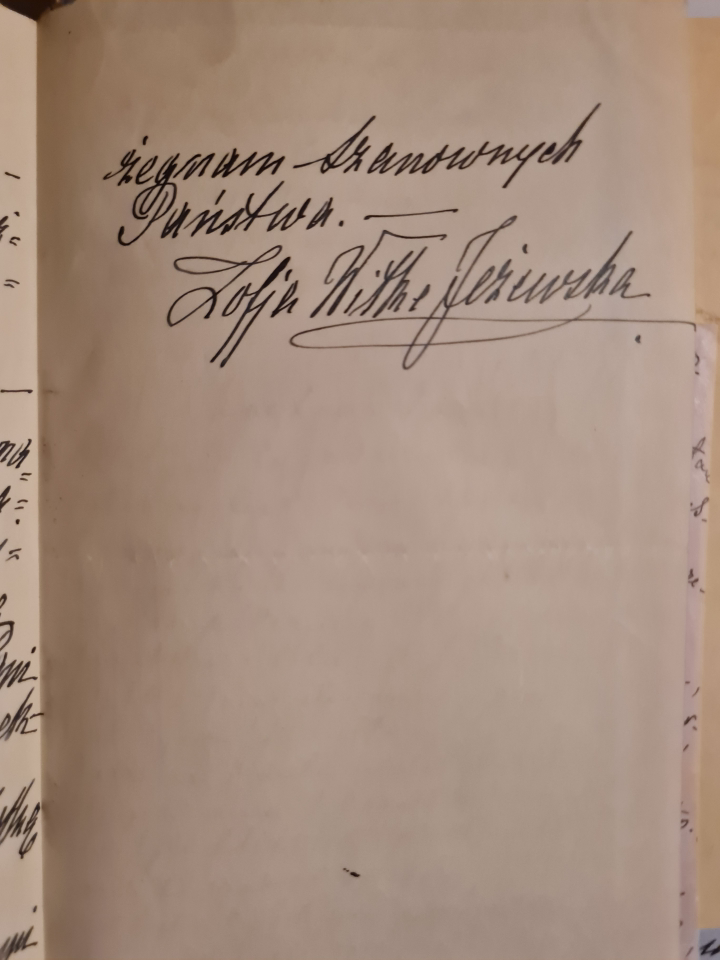 żegnam Szanownych
Państwa. —
Zofja Witke Jeżewska